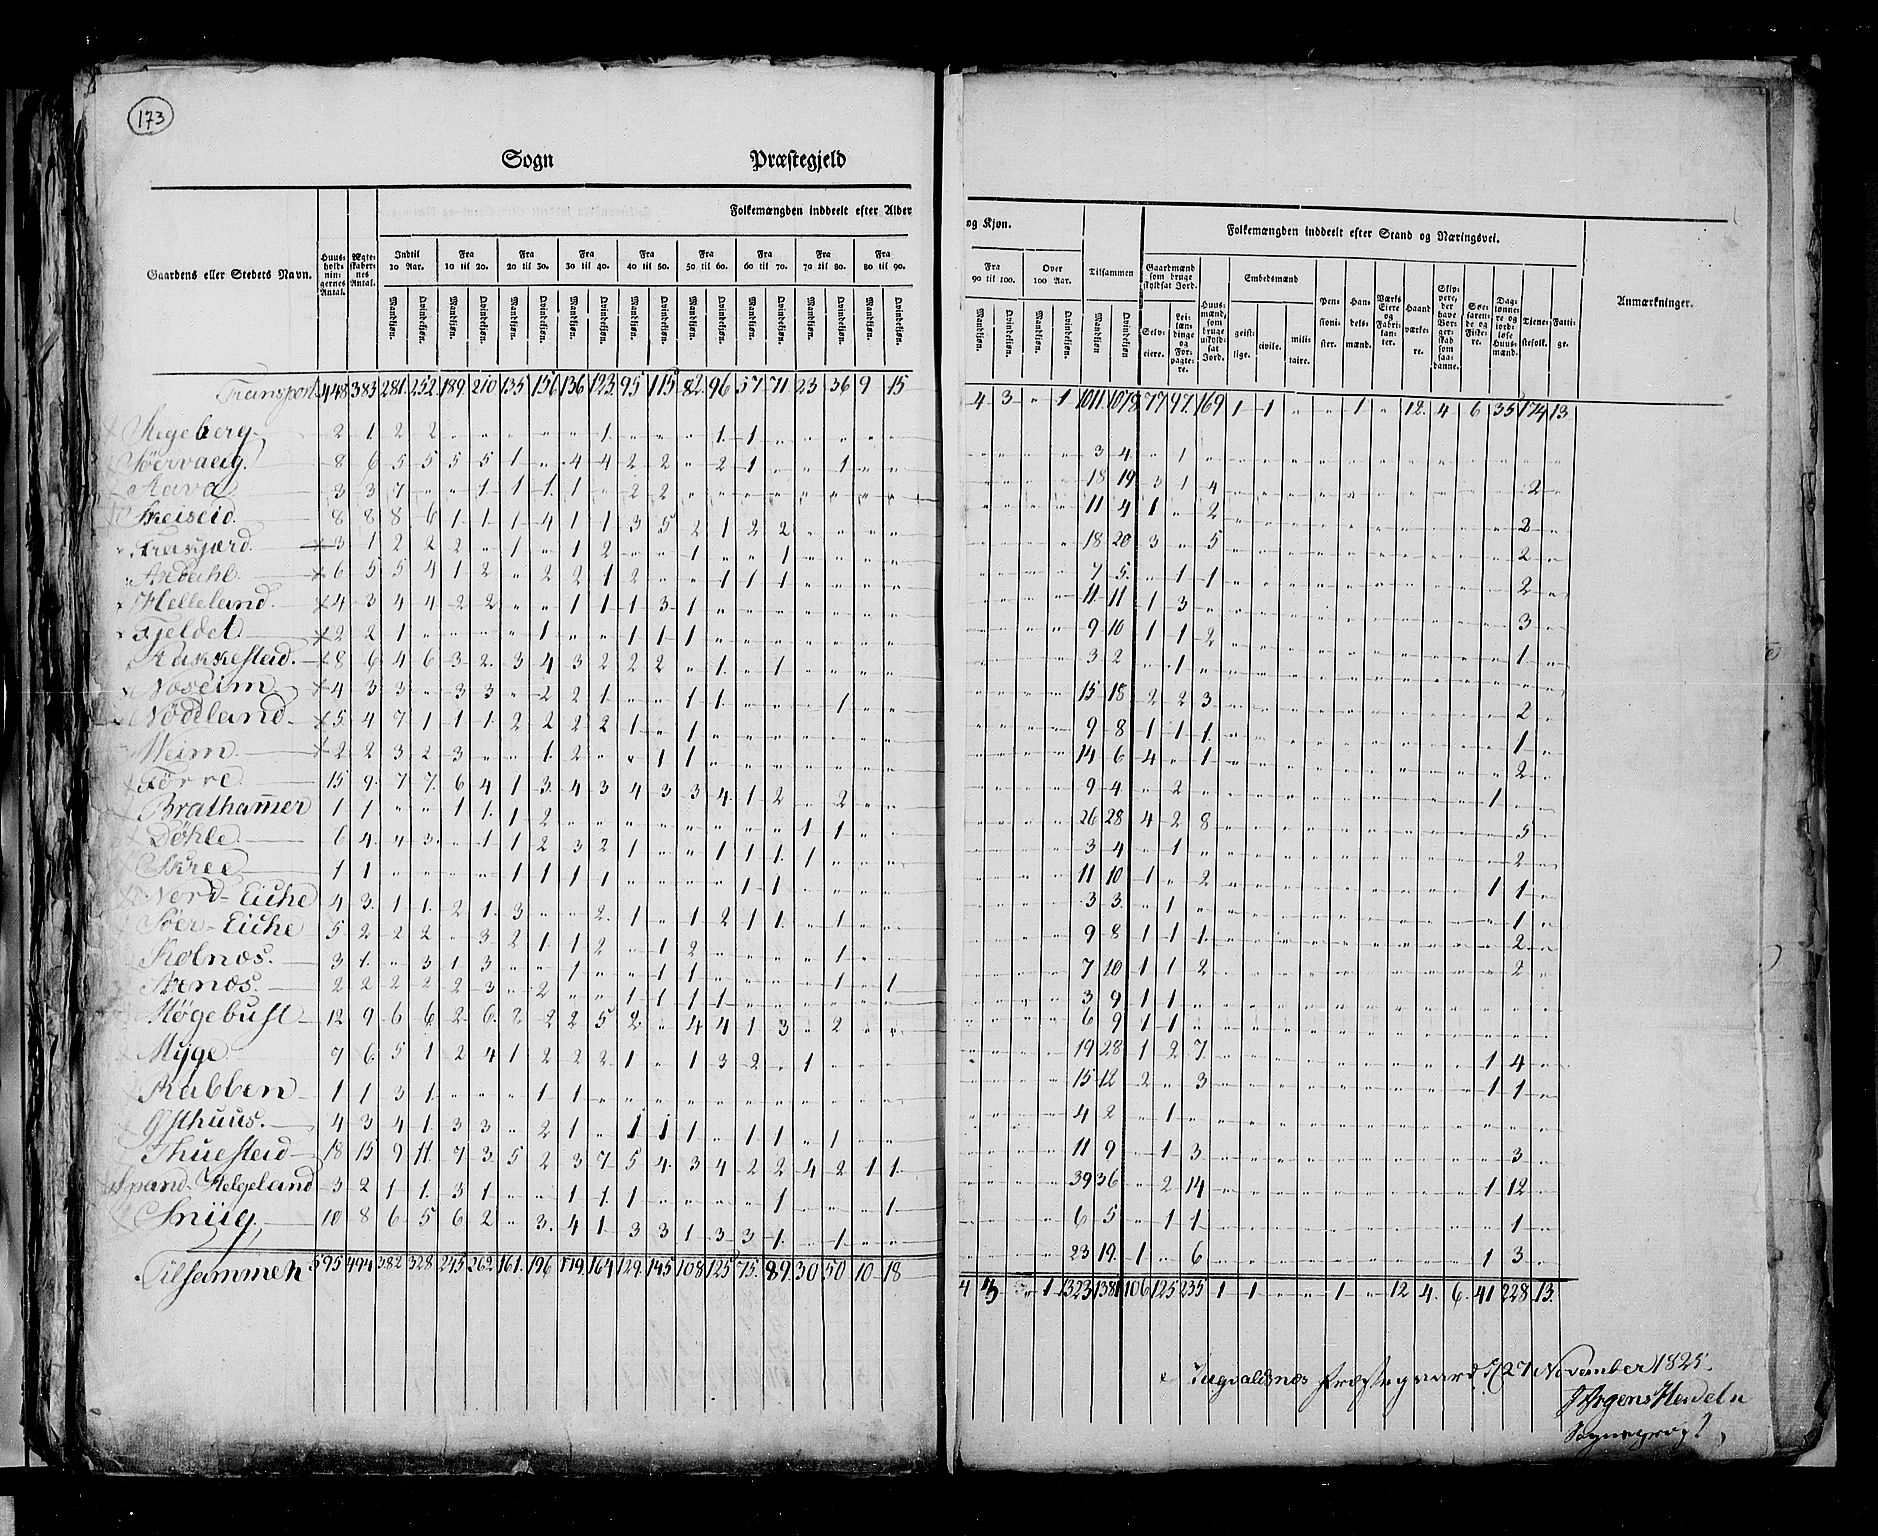 173
Sogn Præstegjeld
Folkemængden inddeelt efter Alder
og Kjøn.
Folkemængden inddeelt efter Stand og Næringsvei.
Gaardens eller Stedets Navn.
Huus-holdnin-gernes Antal.
Ægte-skaber-nes Antal.
Indtil 10 Aar.
Fra 10 til 20.
Fra 20 til 30.
Fra 30 til 40.
Fra 40 til 50.
Fra 50 til 60.
Fra 60 til 70.
Fra 70 til 80.
Fra 80 til 90.
Fra 90 til 100.
Over 100 Aar.
Tilsammen
Mandkjøn. Qvindekjøn.
Gaardmænd som bruge skyldsat Jord.
Selv-eiere.
Lei-lændinge og For-pagte-re.
Huus-mænd, som bruge uskyld-sat Jord.
Embedsmænd
geist-lige. civile. mili-taire.
Pen-sioni-ster.
Han-dels-mænd.
Værks Eiere og Fabri-kan-ter.
Haand værke-re.
Skip-pere, der have Bor-ger-skab som saa-danne.
Søe-farende og Fiske-re.
Dag-lønne-re og jord-løse Huus-mænd.
Tjene-stefolk.
Fatti-ge.
Anmærkninger.
Transport 448 383 281 252 189 210 135 156 136 123 95 115 82 96 57 71 23 36 9 15 4 3 „ 1 1011 1078 77 97 169 1 1 „ „ 1 „ 12 4 6 35 174 13
Stegeberg 2 1 2 2 1 1 1 3 4 1
Søervaag 8 6 5 5 5 5 1 „ 4 4 2 2 „ 2 1 „ „ 1 18 19 3 1 4 2
3 3 7 „ „ 1 1 1 1 „ 2 2 11 4 1 „ 2 2
Skeiseid 8 8 8 6 1 1 1 4 1 1 3 5 2 1 2 2 18 20 3 „ 5 2
3 1 2 2 2 „ 1 „ 1 2 „ „ 1 „ „ 1 7 5 „ 1 1 2
6 5 5 4 1 2 „ 2 2 1 2 „ „ 1 1 1 11 11 1 3 3
Helleland 4 3 4 4 2 2 „ „ 1 1 1 3 1 9 10 1 1 2 1
Fjeldet 2 2 1 „ „ „ „ 1 „ „ 1 1 1 3 2 „ 1
Rukkestad 8 6 4 6 3 2 3 4 3 2 2 2 „ 1 „ 1 15 18 2 2 3 2
Noreim 4 3 3 „ 3 3 „ 2 2 1 „ „ 1 1 „ „ „ 1 9 8 1 1 1 1
Nødland 5 4 7 1 1 1 2 2 2 2 1 „ 1 14 6 4 „ 1 2
2 2 3 2 3 „ „ 1 2 „ „ 1 1 9 4 „ 2 „ 1
Førre 15 9 7 7 6 4 1 3 4 3 4 3 3 4 1 2 „ 2 26 28 4 2 8 5
Brathammer 1 1 „ „ 1 1 1 2 „ „ „ „ „ „ „ „ 1 1 3 4 „ 1 2
Døhle 6 4 „ 3 „ 1 1 2 3 2 1 „ „ 1 1 1 1 11 10 1 „ 2 1 1
Skree 1 1 „ „ „ „ 1 1 1 1 „ „ „ „ 1 1 3 3 „ 1 1
Nord-Eiche 4 3 1 1 2 1 3 „ „ 2 1 „ 1 2 1 1 „ 1 9 8 1 1 1 2
Søer-Eiche 5 2 2 2 „ 3 2 1 1 2 „ 1 2 „ „ „ „ 1 7 10 1 1 2 2
Kolnæs 3 1 „ 3 1 3 „ „ 1 „ „ 1 1 „ „ „ „ 1 „ 1 3 9 1 1
2 2 2 2 2 3 „ 2 „ „ 1 1 1 1 6 9 1 1
Høgebust 12 9 6 6 2 6 2 2 2 5 2 „ 4 4 1 3 „ 2 19 28 1 2 7 1 4
Myge 7 6 5 1 2 4 1 2 2 2 1 „ 1 3 2 „ 1 15 12 2 „ 3 1 1
Rabben 1 1 3 1 „ „ „ 1 1 4 2 „ 1
Østhuus 4 3 4 1 3 3 „ 2 1 „ 1 1 1 „ 1 1 „ 1 11 9 „ 1 3 3
Thuestad 18 15 9 11 7 3 5 2 3 7 5 4 3 4 2 2 4 2 1 1 39 36 „ 2 14 1 12
Spand-Helgeland 3 2 1 1 3 1 „ „ 1 1 1 „ „ „ „ 1 „ „ „ 1 6 5 „ 1 1 1
Sniig 10 8 6 5 6 2 „ 3 4 1 3 3 1 3 3 1 „ 1 23 19 1 „ 6 1 3
Tilsammen 595 494 382 328 245 262 161 196 179 164 129 145 108 125 75 89 30 50 10 18 4 3 „ 1 1323 1381 106 125 235 1 1 „ „ 1 „ 12 4 6 41 228 13
Augvaldsnæs Præstegaard d 27 November 1825.
Sogneprest